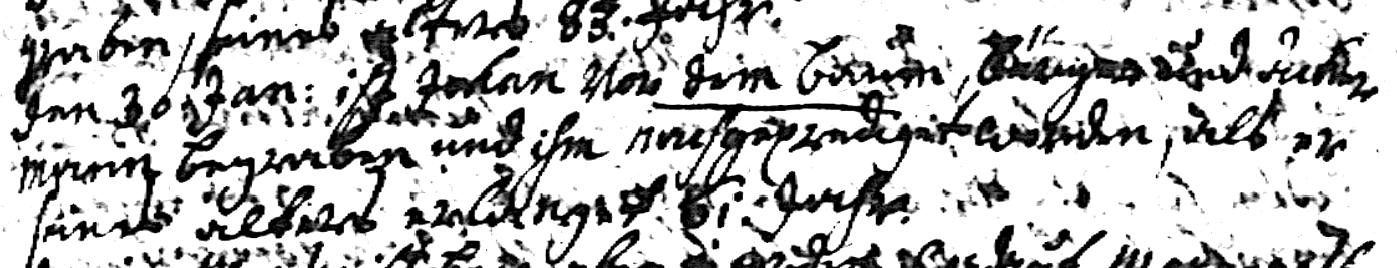 graben, seines alters 83. Jahr.
den 30. Jan: ist Johan Von dem baum, Bürger und Acker
mann begraben und ihm nachgeprediget worden, als er
seines alters erlanget 61. Jahr.